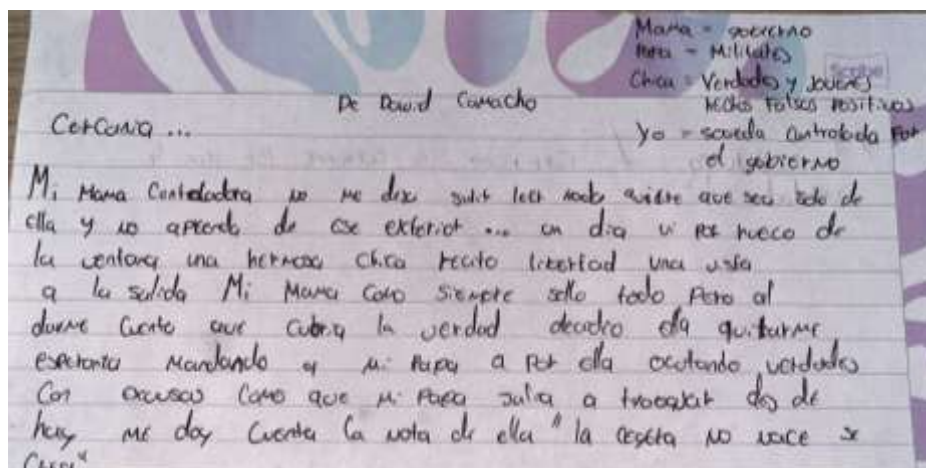 Mama = gobierno
Papa = Militares
Chica = Verdades y Jovenes
De David Camacho
hechos Falsos Positivos
Cercania ...
Yo = controlada Por
el gobierno
Mi Mama Controladora no me deja salir leer nada quiere que sea todo de
ella y no aprenda de ese exterior ... un dia vi por hueco de
la ventana una hermosa chica libertad una
a la salida Mi Mama Como siempre sello todo Pero al
darme Cuenta que Cubria la verdad ella quitarme
esperanza Mandando a Mi Papa a Por ella ocultando verdades
Con excusas Como que Mi Papa salia a trabajar de
hoy me doy Cuenta la nota de ella " la no nace se
Crea"